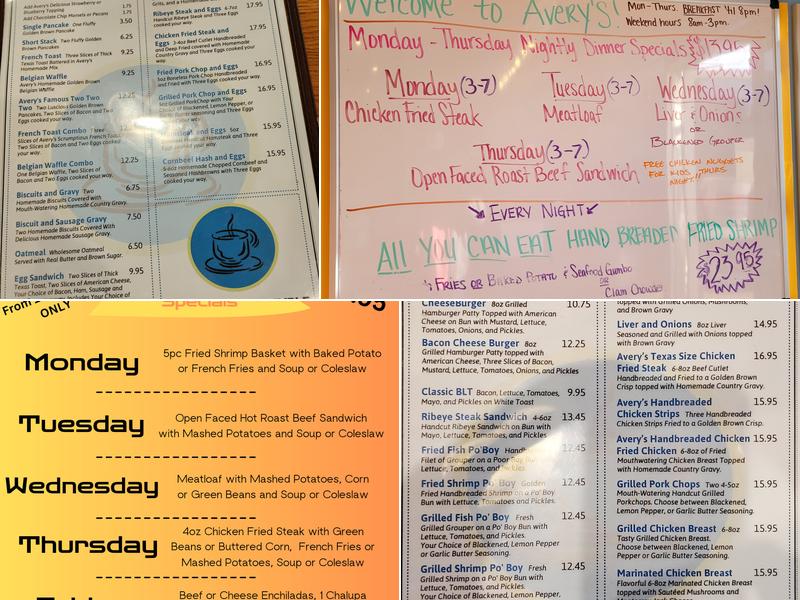 Add Avery's Delicious Strawberry or
Blueberry Topping 1.75
Add Chocolate Chip Morsels or Pecans 1.75
Single Pancake One Fluffy 3.50
Golden Brown Pancake
Short Stack Two Fluffy Golden 6.25
Brown Pancakes
French Toast Three Slices of Thick 9.25
Texas Toast Battered in Avery's
Homemade Mix
Belgian Waffle 9.25
Avery's Homemade Golden Brown
Belgian Waffle
Avery's Famous Two Two 12.25
Two Two Luscious Golden Brown
Pancakes, Two Slices of Bacon and Two
Eggs cooked your way.
French Toast Combo Three
Slices of Avery's Scrumptious French Toast,
Two Slices of Bacon and Two Eggs cooked
your way.
Belgian Waffle Combo 12.25
One Belgian Waffle, Two Slices of
Bacon, and Two Eggs cooked your
way.
Biscuits and Gravy Two 6.75
Homemade Biscuits Covered with
Mouth-Watering Homemade Country Gravy.
Biscuit and Sausage Gravy 7.50
Two Homemade Biscuits Covered with
Delicious Homemade Sausage Gravy.
Oatmeal Wholesome Oatmeal 6.50
Served with Real Butter and Brown Sugar.
Egg Sandwich Two Slices of Thick 9.95
Texas Toast, Two Slices of American Cheese,
Your Choice of Bacon, Ham, Sausage and
Grits, and a Homemade Biscuit.
Ribeye Steak and Eggs 6-7oz 17.95
Handcut Ribeye Steak and Three Eggs
cooked your way.
Chicken Fried Steak and 17.95
Eggs 3-4oz Beef Cutlet Handbreaded
and Deep Fried covered with Homemade
Country Gravy and Three Eggs cooked
your way.
Fried Pork Chop and Eggs 16.95
5oz Boneless Pork Chop Handbreaded
and Fried with Three Eggs cooked your way.
Grilled Pork Chop and Eggs 16.95
5oz Grilled PorkChop with Your
Choice of Blackened, Lemon Pepper,
or Garlic Butter seasoning and Three Eggs
cooked your way.
and Eggs 5oz 15.95
Hamsteak and Three
Eggs cooked your way.
Cornbeef Hash and Eggs 15.95
6-8oz Homemade Chopped Cornbeef and
Seasoned Hashbrowns with Three Eggs
cooked your way.
Welcome to Avery's!
Mon-Thurs. BREAKFAST 'til 8pm!
Weekend hours 8am-3pm.
Monday - Thursday Nightly Dinner Specials $13.95
Monday (3-7)
Chicken Fried Steak
Tuesday (3-7)
Meatloaf
Wednesday (3-7)
Liver & Onions
OR
BLACKENED GROUPER
Thursday (3-7)
Open Faced Roast Beef Sandwich
FREE CHICKEN NUGGETS
FOR KIDS "THURS
NIGHT"
EVERY NIGHT
ALL YOU CAN EAT HAND BREADED FRIED SHRIMP
$23.95
FRIES OR BAKED POTATO & Seafood Gumbo
OR
Clam Chowder
From
ONLY
Specials
Monday
5pc Fried Shrimp Basket with Baked Potato
or French Fries and Soup or Coleslaw
Tuesday
Open Faced Hot Roast Beef Sandwich
with Mashed Potatoes and Soup or Coleslaw
Wednesday
Meatloaf with Mashed Potatoes, Corn
or Green Beans and Soup or Coleslaw
Thursday
4oz Chicken Fried Steak with Green
Beans or Buttered Corn, French Fries or
Mashed Potatoes, Soup or Coleslaw
Beef or Cheese Enchiladas, 1 Chalupa
CheeseBurger 8oz Grilled 10.75
Hamburger Patty Topped with American
Cheese on Bun with Mustard, Lettuce,
Tomatoes, Onions, and Pickles
Bacon Cheese Burger 8oz 12.25
Grilled Hamburger Patty topped with
American Cheese, Three Slices of Bacon,
Mustard, Lettuce, Tomatoes, Onions, and Pickles
Classic BLT Bacon, Lettuce, Tomatoes, 9.95
Mayo, and Pickles on White Toast
Ribeye Steak Sandwich 4-6oz 13.45
Handcut Ribeye Sandwich on Bun with
Mayo, Lettuce, Tomatoes, and Pickles
Fried Fish Po' Boy 12.45
Filet of Grouper on a Poor Boy
Lettuce, Tomatoes, and Pickles.
Fried Shrimp Po' Boy Golden 12.45
Fried Handbreaded Shrimp on a Po' Boy
Bun with Lettuce, Tomatoes, and Pickles.
Grilled Fish Po' Boy Fresh 12.45
Grilled Grouper on a Po' Boy Bun with
Lettuce, Tomatoes, and Pickles.
Your Choice of Blackened, Lemon Pepper,
or Garlic Butter Seasoning.
Grilled Shrimp Po' Boy Fresh 12.45
Grilled Shrimp on a Po' Boy Bun with
Lettuce, Tomatoes, and Pickles.
Your Choice of Blackened, Lemon
topped with Grilled Onions, Mushrooms,
and Brown Gravy
Liver and Onions 8oz Liver 14.95
Seasoned and Grilled with Onions topped
with Brown Gravy
Avery's Texas Size Chicken 16.95
Fried Steak 6-8oz Beef Cutlet
Handbreaded and Fried to a Golden Brown
Crisp topped with Homemade Country Gravy.
Avery's Handbreaded 15.95
Chicken Strips Three Handbreaded
Chicken Strips Fried to a Golden Brown Crisp.
Avery's Handbreaded Chicken 15.95
Fried Chicken 6-8oz of Fried
Mouthwatering Chicken Breast Topped
with Homemade Country Gravy.
Grilled Pork Chops Two 4-5oz 15.95
Mouth-Watering Handcut Grilled
Porkchops. Choose between Blackened,
Lemon Pepper, or Garlic Butter Seasoning.
Grilled Chicken Breast 6-8oz 15.95
Tasty Grilled Chicken Breast.
Choose between Blackened, Lemon
Pepper or Garlic Butter Seasoning.
Marinated Chicken Breast 15.95
Flavorful 6-8oz Marinated Chicken Breast
topped with Sautéed Mushrooms and